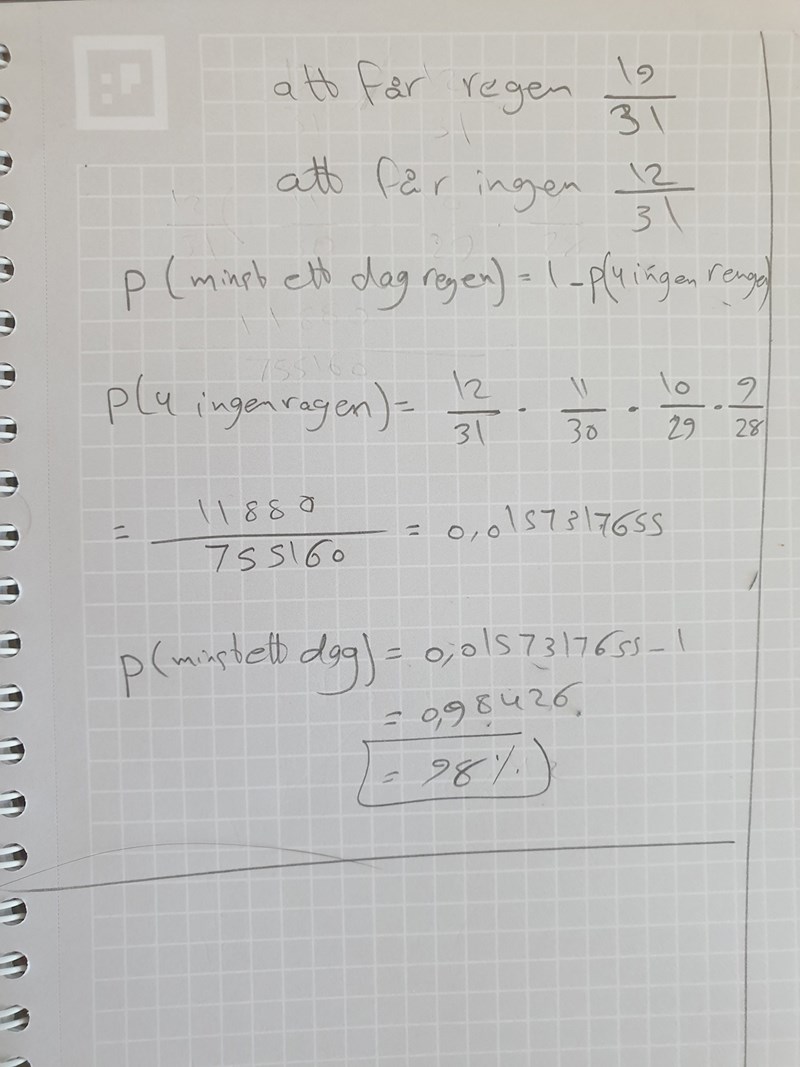 att får regen 19/31
att får ingen 12/31
P(minst ett dag regen) = 1 - P(4 ingen renge)
P(4 ingen ragen) = 12/31 · 11/30 · 10/29 · 9/28
= 11880/755160 = 0,0157317655
P(minst ett dag) = 0,0157317655 - 1
= 0,98426
= 98%